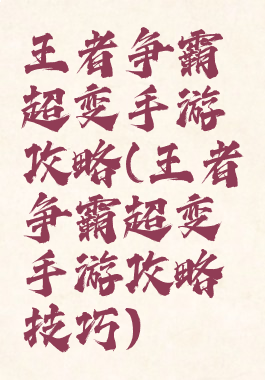 王者争霸
超变手游
攻略(王者
争霸超变
手游攻略
技巧)